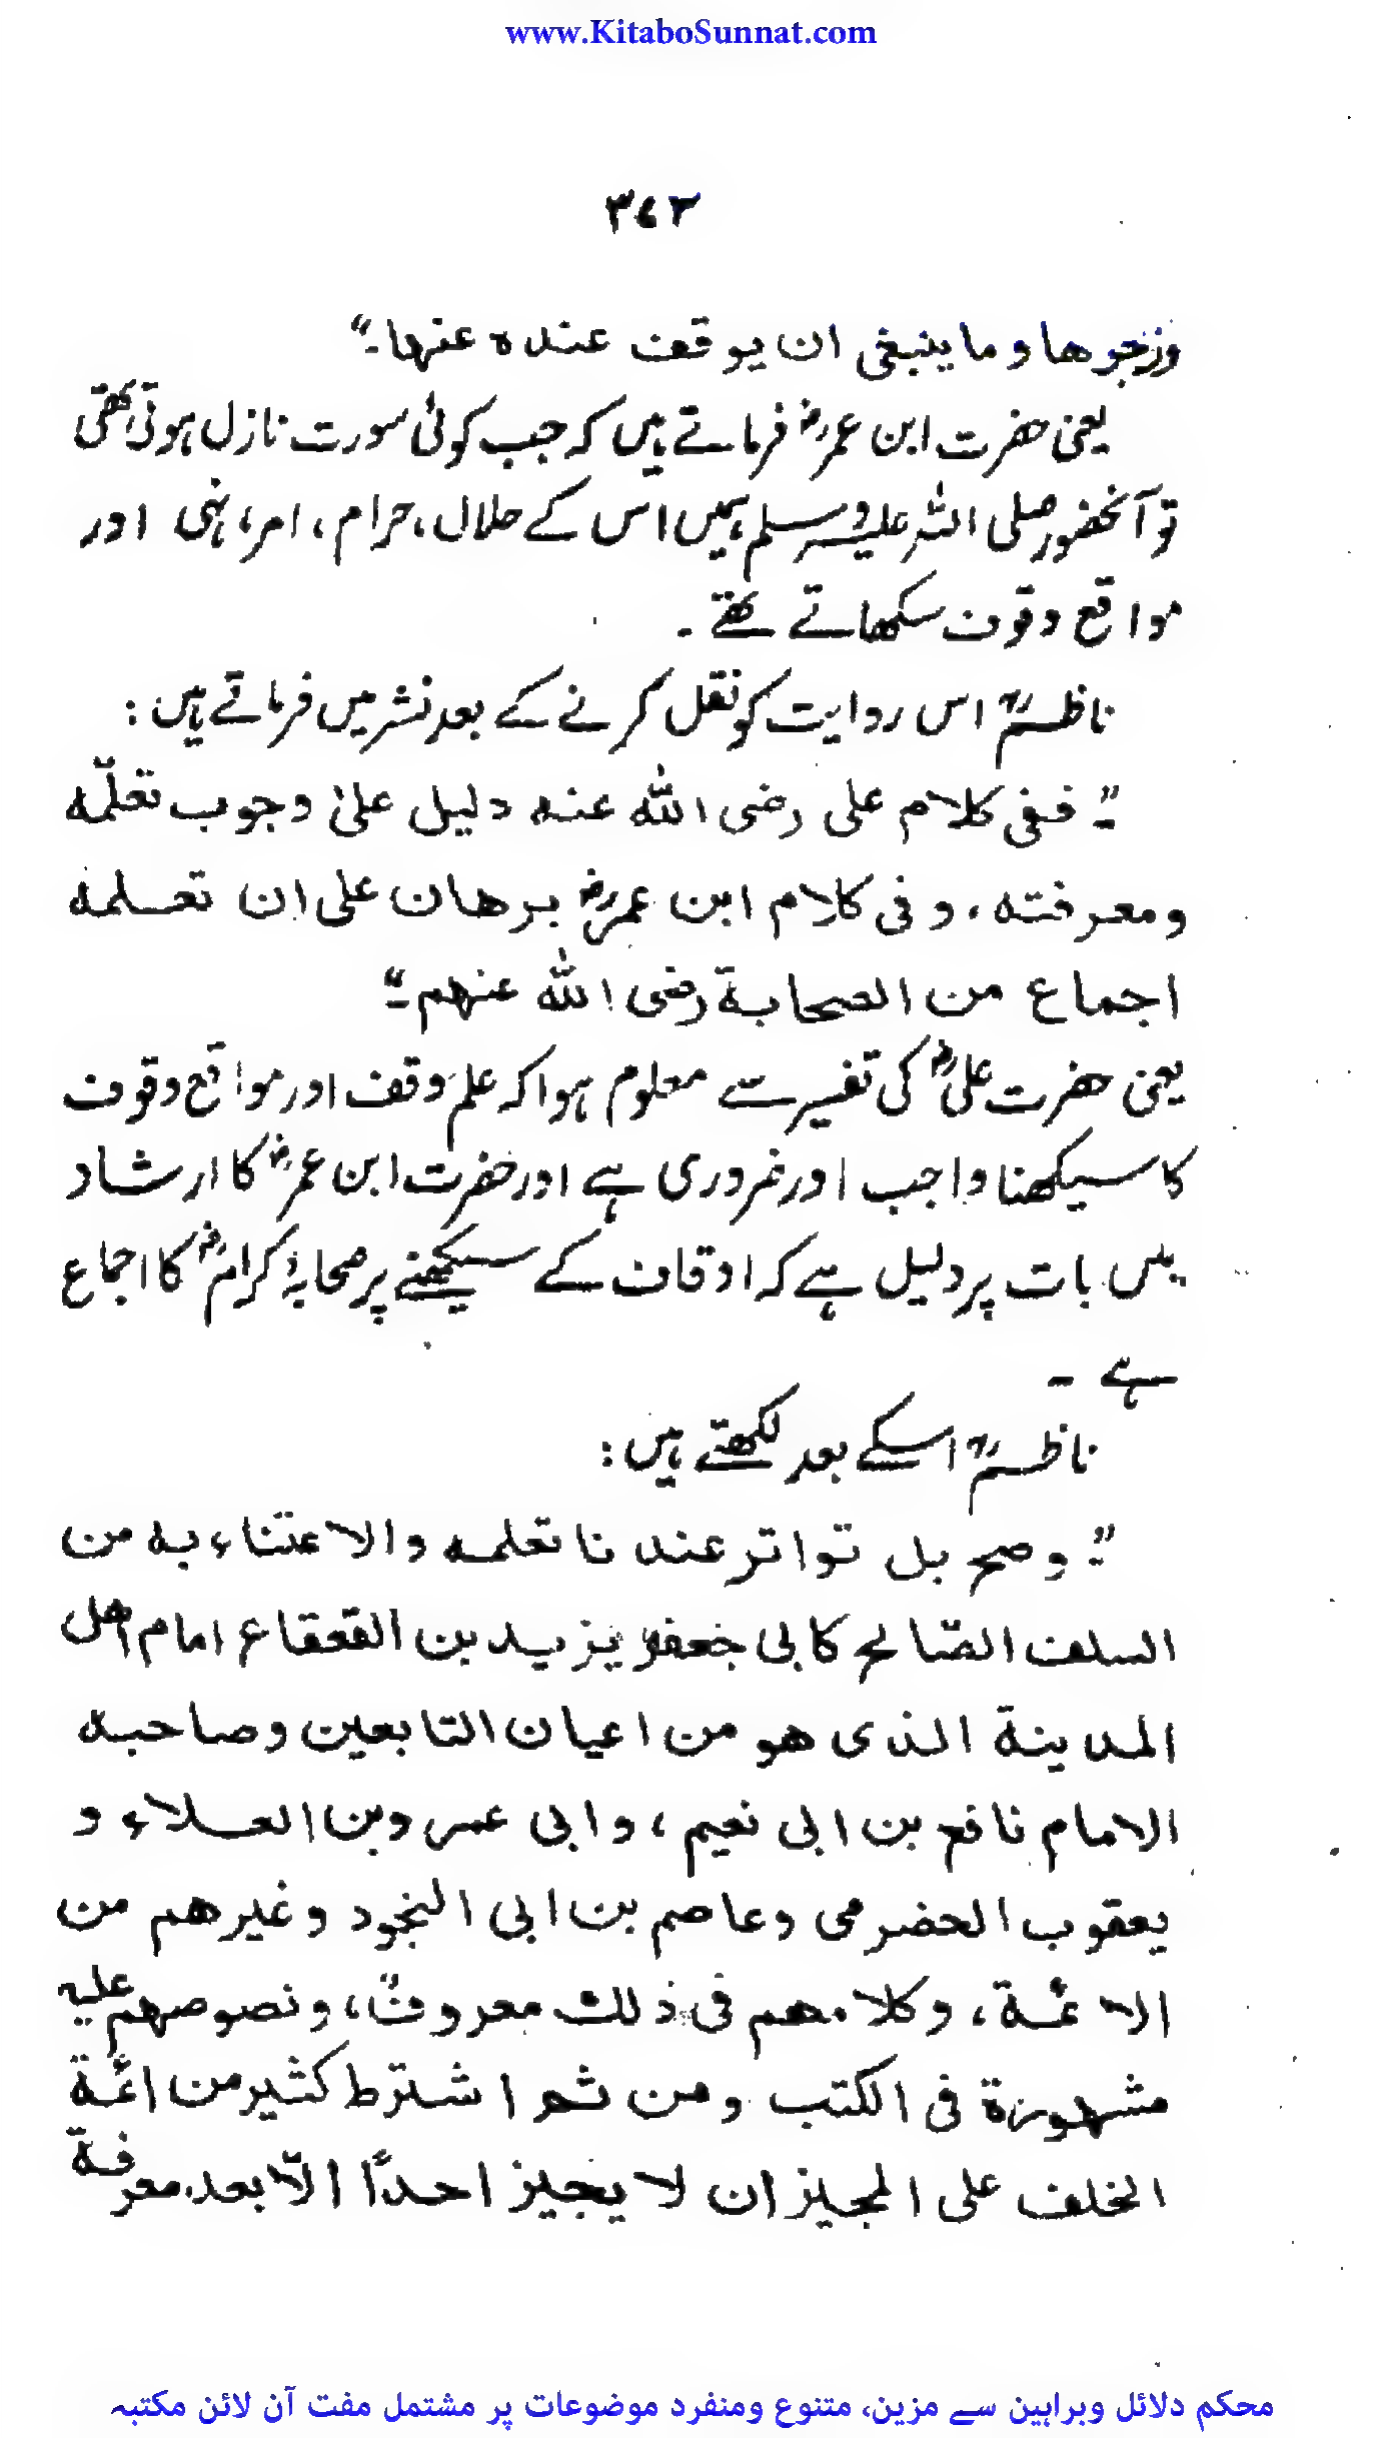 www.KitaboSunnat.com
۳۷۳
وزجوها وما ينبغى ان يوقف عنده عنها۔"
یعنی حضرت ابن عمرؓ فرماتے ہیں کہ جب کوئی سورت نازل ہوتی تھی
تو آنحضور صلی اللہ علیہ وسلم ہمیں اس کے حلال، حرام، امر، نہی اور
مواقع وقوف سکھاتے تھے۔
ناظمؒ اس روایت کو نقل کرنے کے بعد نشر میں فرماتے ہیں:
"ففى كلام على رضى الله عنه دليل علىٰ وجوب تعلّمه
ومعرفته، وفى كلام ابن عمرؓ برهان على ان تعلمه
اجماع من الصحابة رضى الله عنهم۔"
یعنی حضرت علیؓ کی تفسیر سے معلوم ہوا کہ علم وقف اور مواقع وقوف
کا سیکھنا واجب اور ضروری ہے اور حضرت ابن عمرؓ کا ارشاد
اس بات پر دلیل ہے کہ اوقاف کے سیکھنے پر صحابۂ کرامؓ کا اجماع
ہے ۔
ناظمؒ اسکے بعد لکھتے ہیں:
"وصح بل تواتر عندنا تعلمه والاعتناء به من
السلف الصّالح كابى جعفر يزيد بن القعقاع امام اهل
المدينة الذى هو من اعيان التابعين وصاحبه
الامام نافع بن ابى نعيم، وابى عمرو بن العلاء و
يعقوب الحضرمى وعاصم بن ابى النجود وغيرهم من
الائمة، وكلامهم فى ذلك معروفٌ، ونصوصهم عليه
مشهورة فى الكتب ومن ثم اشترط كثير من ائمة
الخلف على المجيز ان لا يجيز احدًا الّا بعد معرفة
محکم دلائل وبراہین سے مزین، متنوع ومنفرد موضوعات پر مشتمل مفت آن لائن مکتبہ